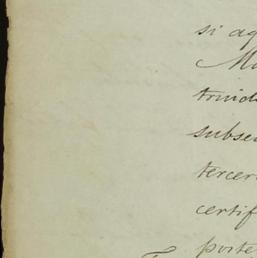 si aq
Mu
trinid
subse
tercer
certif
porte